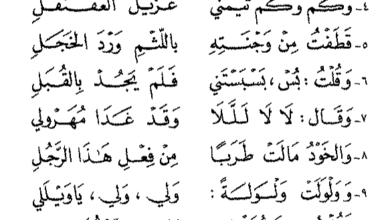 ٤ـ وَكَم وَكَم تَيَّمَني غُزَيِّلٌ عَقَنْقَلي
٥ـ قَطَفْتُ مِنْ وَجْنَتِهِ بِاللَّثْمِ وَرْدَ الخَجَلِ
٦ـ وَقُلْتُ : بُسْ ، بَسْبَسْتَني فَلَمْ يَجُدْ بِالقُبَلِ
٧ـ وَقَال : لَا لَا لَلَلَا وَقَدْ غَدَا مُهَرْوِلي
٨ـ وَالخَوْدُ مَالَتْ طَرَبًا مِنْ فِعْلِ هَذَا الرَّجُلِ
٩ـ وَوَلْوَلَتْ وَلْوَلَةً : وَلي ، وَلي ، يَاوَيْلَلي